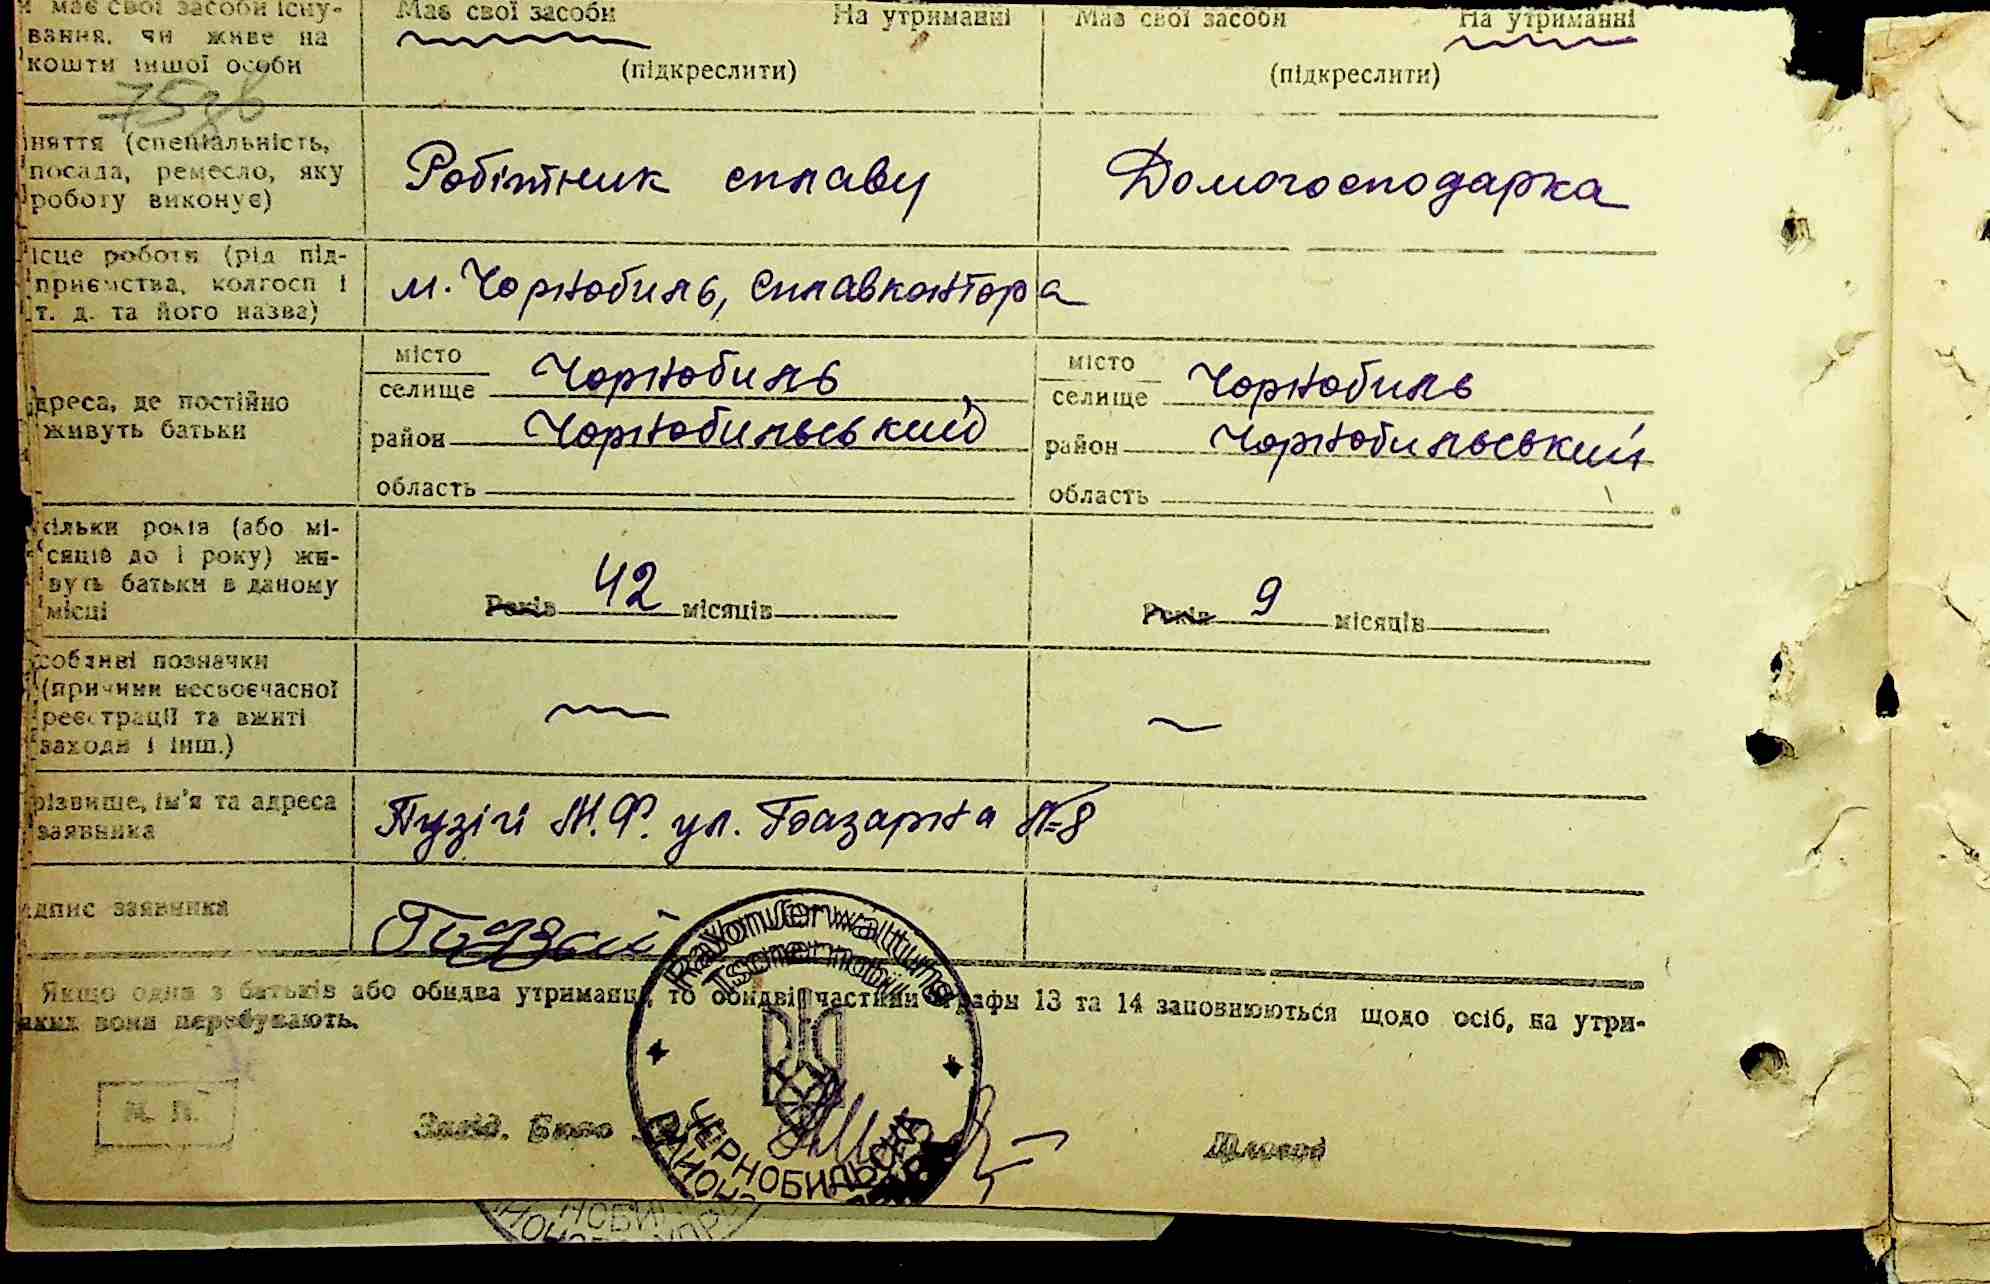 має свої засоби існу-
вання, чи живе на
кошти іншої особи
Має свої засоби На утриманні Має свої засоби На утриманні
(підкреслити) (підкреслити)
няття (спеціальність,
посада, ремесло, яку
роботу виконує)
Робітник сплаву Домогосподарка
ісце роботи (рід під-
приємства, колгосп і
т. д. та його назва)
м. Чорнобиль, Сплавконтора
дреса, де постійно
живуть батьки
місто
селище Чорнобиль
район Чорнобильський
область
місто
селище Чорнобиль
район Чорнобильський
область
кільки років (або мі-
сяців до 1 року) жи-
вуть батьки в даному
місці
Років 42 місяців Років 9 місяців
собливі позначки
(причини несвоєчасної
реєстрації та вжиті
заходи і інш.)
різвище, ім'я та адреса
заявника
Пузій М.Ф. ул. Базарна №8
ідпис заявника
Якщо один з батьків або обидва утриманці, то обидві частини графи 13 та 14 заповнюються щодо осіб, на утри-
яких вони перебувають.
Rayonverwaltung
Tschernobil
ЧЕРНОБИЛЬСЬКА
РАЙОН
М. П.
Завід. Бюро